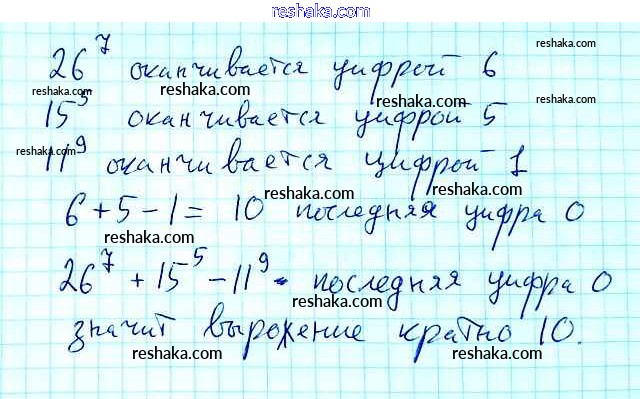 reshaka.com
26⁷ оканчивается цифрой 6
reshaka.com
reshaka.com
reshaka.com
15⁵ оканчивается цифрой 5
reshaka.com
reshaka.com
reshaka.com
11⁹ оканчивается цифрой 1
reshaka.com
reshaka.com
6+5-1= 10 последняя цифра 0
reshaka.com
reshaka.com
26⁷ + 15⁵ - 11⁹ - последняя цифра 0
reshaka.com
reshaka.com
значит выражение кратно 10.
reshaka.com
reshaka.com
reshaka.com